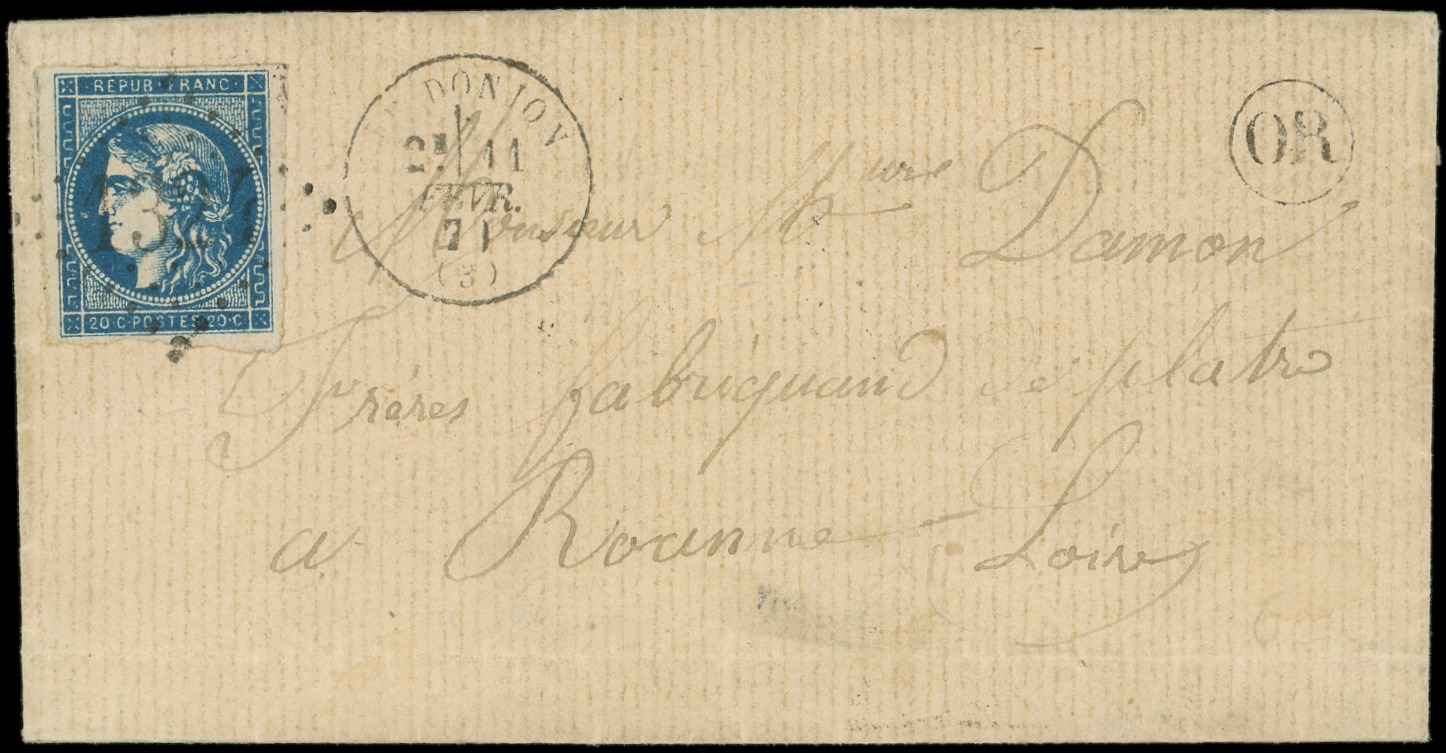 REPUB FRANC
20 C·POSTES 20·C
LE DONJON
2E 11
FEVR.
71
(3)
OR
Monsieur Damon
Frères fabriquand de platre
a Roanne Loire